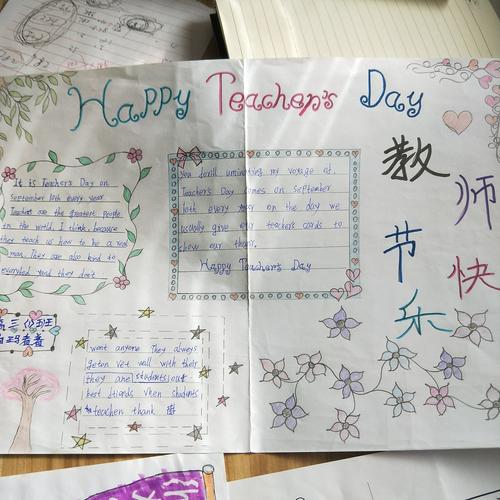 Happy Teacher's Day
It is Teacher's Day on
September 10th every year
Teachers are the greatest people
in the world, I think, because
they teach us how to be a real
man. They are also kind to
everybod yand they don't
my voyage at.
Teachers Day comes on September
10th every year on the day we
usually give our teachers cards to
show our
Happy Teacher's Day
教
师
节
快
乐
班
want anyone They always
geton very well with their
they are students
best friends when students
teacher thank